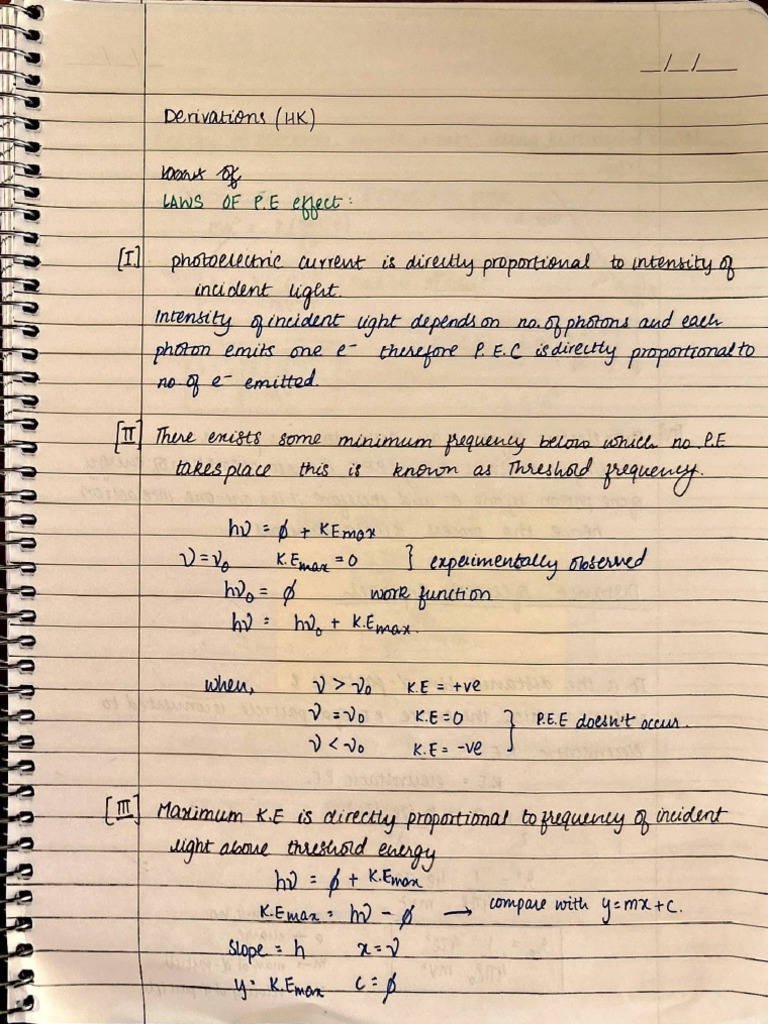 _/_/__
Derivations (HK)
Laws of
LAWS OF P.E effect:
[I] photoelectric current is directly proportional to intensity of
incident light.
Intensity of incident light depends on no. of photons and each
photon emits one e⁻ therefore P.E.C is directly proportional to
no of e⁻ emitted.
[II] There exists some minimum frequency below which no P.E
takes place this is known as Threshold frequency.
hν = ϕ + KEmax
ν=ν₀ K.Emax = 0 } experimentally observed
hν₀ = ϕ work function
hν = hν₀ + K.Emax.
when, ν > ν₀ K.E = +ve
ν = ν₀ K.E = 0 } P.E.E doesn't occur.
ν < ν₀ K.E = -ve
[III] Maximum K.E is directly proportional to frequency of incident
light above threshold energy
hν = ϕ + K.Emax
K.Emax = hν - ϕ → compare with y=mx+c.
Slope = h x = ν
y = K.Emax c = ϕ